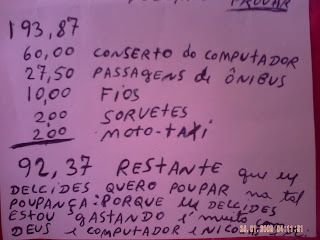 PROVAR
193,87
60,00 CONSERTO do COMPUTADOR
27,50 PASSAGENS de ÔNIBUS
10,00 FIOS
2,00 SORVETES
2,00 MOTO-TAXI
92,37 RESTANTE que eu
DELCIDES QUERO POUPAR na tal
POUPANÇA: PORQUE EU DELCIDES
ESTOU GASTANDO é muito com
DEUS E COMPUTADOR E